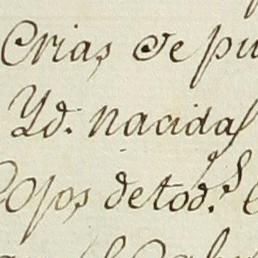 Crias de pu
Yd. nacidas
Ojos de tod.s